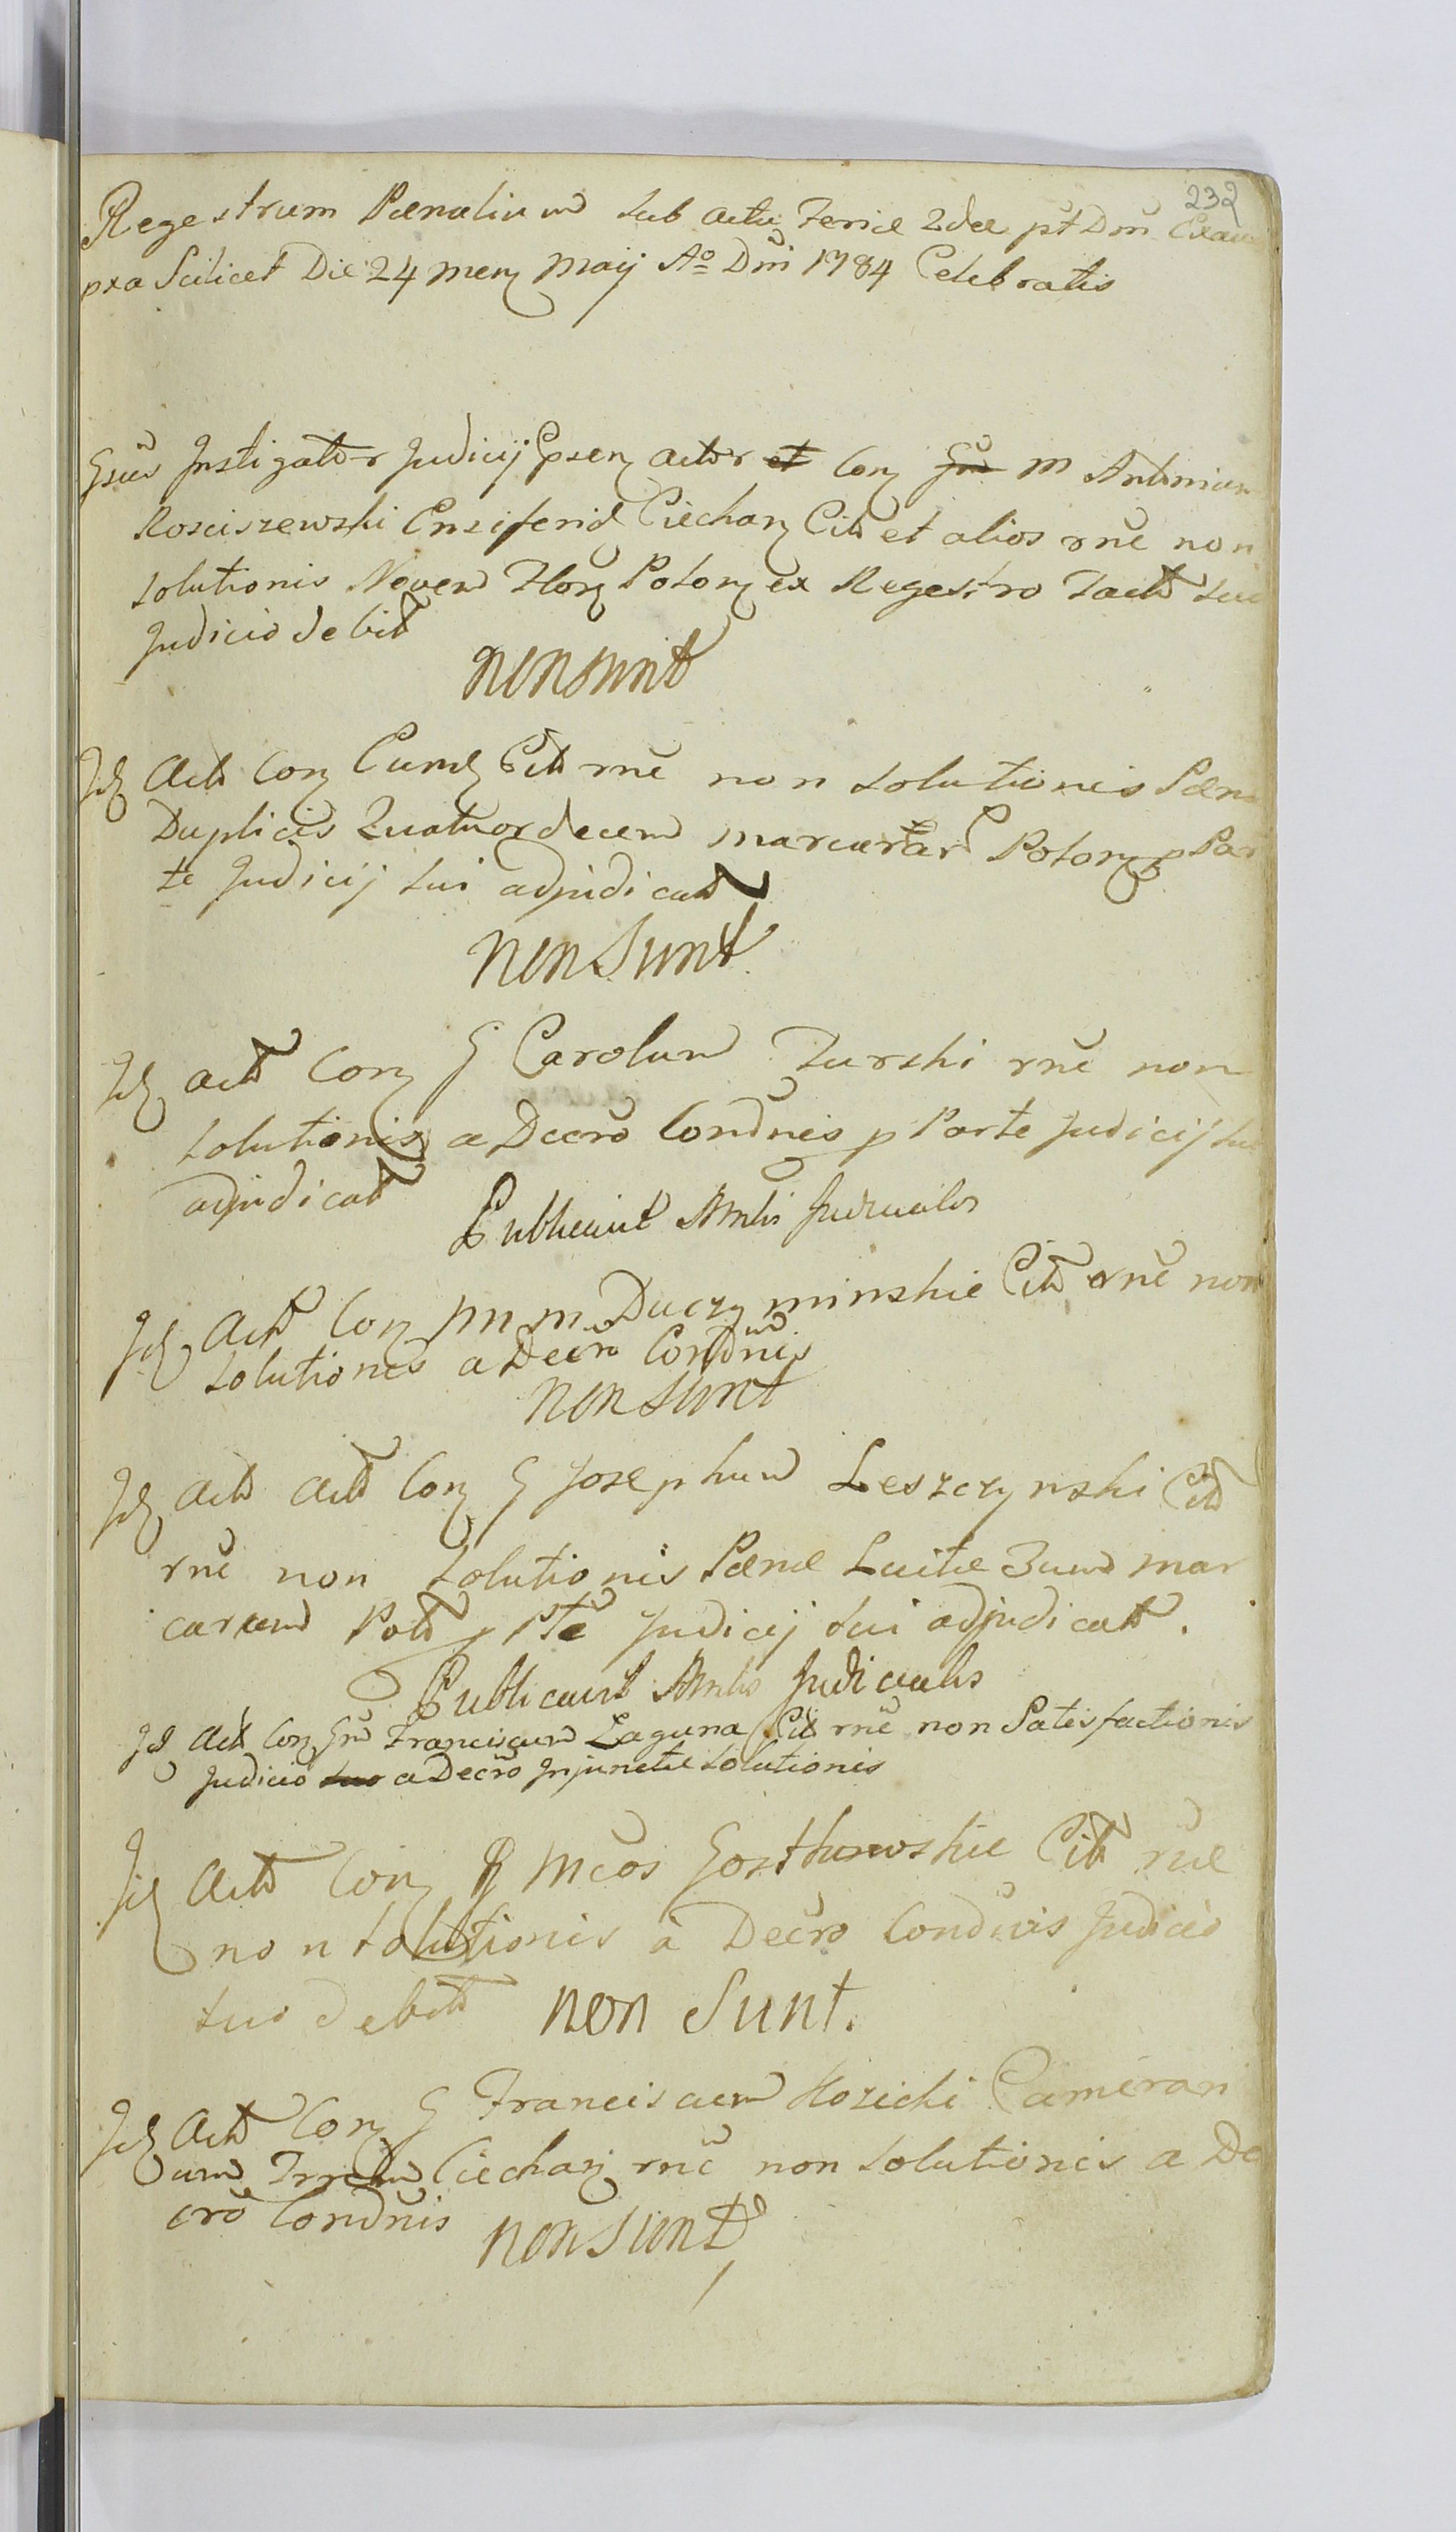 232
Regestrum Pœnalium sub actu Feriæ 2dæ pt Dm Exau
pxa Scilicet Die 24 Mens Maij Ao Dni 1784 Celebratis
Gsus Instigator Judicij Psen actor et Con Gm M Antonium
Rosciszewski Ensiferid Ciechan Cit et alios rne non
solutionis Novem Flor Polon ex Regestro Tact suo
Judicio debit
non sunt
Id Act Con Eund Cit rne non solutionis Pœnæ
Duplicis Quatuordecem marcarar Polon p Par
te Judicij sui adjudicat
non Sunt
Id act Con G Carolum Turski rne non
solutionis a Decro Condnis p Parte Judicij sui
adjudicat
Publicavit Mnlis Judicialis
Id Act Con M m Duczyminskie Cit rne non
solutionis a Decro Condnis
non sunt
Id Act Act Con G Josephum Leszczynski Cit
rne non solutionis Pœnæ Luitæ 3um mar
carum Pol p Pte Judicij sui adjudicat.
Publicavit Mnlis Judicialis
Id Act Con Gm Franciscum Laguna Cit rne non Satisfactionis
Judicio suo a Decro Injunctæ solutionis
Id Act Con Mcos Gosthowskie Cit rne
non solutionis à Decro Condnis Judicio
suo debit non Sunt.
Id Act Con G Franciscum Kozicki Cameran
um Ciechan rne non solutionis a De
cro Condnis
non sunt